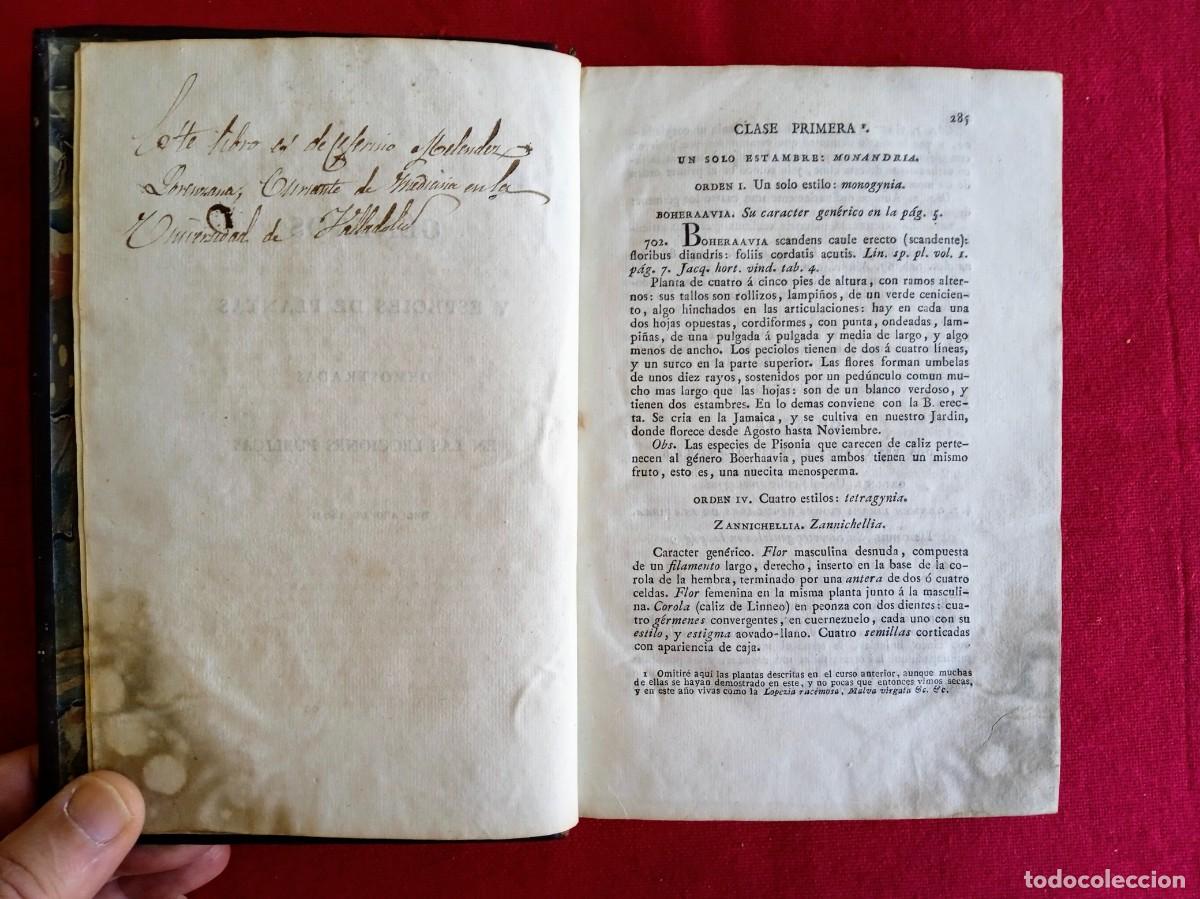 Este libro es de Ceferino Melendez
Lorenzana, Cursante de Medicina en la
Universidad de Valladolid
285
CLASE PRIMERA ¹.
UN SOLO ESTAMBRE: MONANDRIA.
ORDEN I. Un solo estilo: monogynia.
BOHERAAVIA. Su caracter genérico en la pág. 5.
702. BOHERAAVIA scandens caule erecto (scandente):
floribus diandris: foliis cordatis acutis. Lin. sp. pl. vol. 1.
pág. 7. Jacq. hort. vind. tab. 4.
Planta de cuatro á cinco pies de altura, con ramos alter-
nos: sus tallos son rollizos, lampiños, de un verde cenicien-
to, algo hinchados en las articulaciones: hay en cada una
dos hojas opuestas, cordiformes, con punta, ondeadas, lam-
piñas, de una pulgada á pulgada y media de largo, y algo
menos de ancho. Los peciolos tienen de dos á cuatro líneas,
y un surco en la parte superior. Las flores forman umbelas
de unos diez rayos, sostenidos por un pedúnculo comun mu-
cho mas largo que las hojas: son de un blanco verdoso, y
tienen dos estambres. En lo demas conviene con la B. erec-
ta. Se cria en la Jamaica, y se cultiva en nuestro Jardin,
donde florece desde Agosto hasta Noviembre.
Obs. Las especies de Pisonia que carecen de caliz perte-
necen al género Boerhaavia, pues ambos tienen un mismo
fruto, esto es, una nuecita menosperma.
ORDEN IV. Cuatro estilos: tetragynia.
ZANNICHELLIA. Zannichellia.
Caracter genérico. Flor masculina desnuda, compuesta
de un filamento largo, derecho, inserto en la base de la co-
rola de la hembra, terminado por una antera de dos ó cuatro
celdas. Flor femenina en la misma planta junto á la masculi-
na. Corola (caliz de Linneo) en peonza con dos dientes: cua-
tro gérmenes convergentes, en cuernezuelo, cada uno con su
estilo, y estigma aovado-llano. Cuatro semillas corticadas
con apariencia de caja.
1 Omitiré aquí las plantas descritas en el curso anterior, aunque muchas
de ellas se hayan demostrado en este, y no pocas que entonces vimos secas,
y en este año vivas como la Lopezia racemosa, Malva virgata &c. &c.
todocoleccion